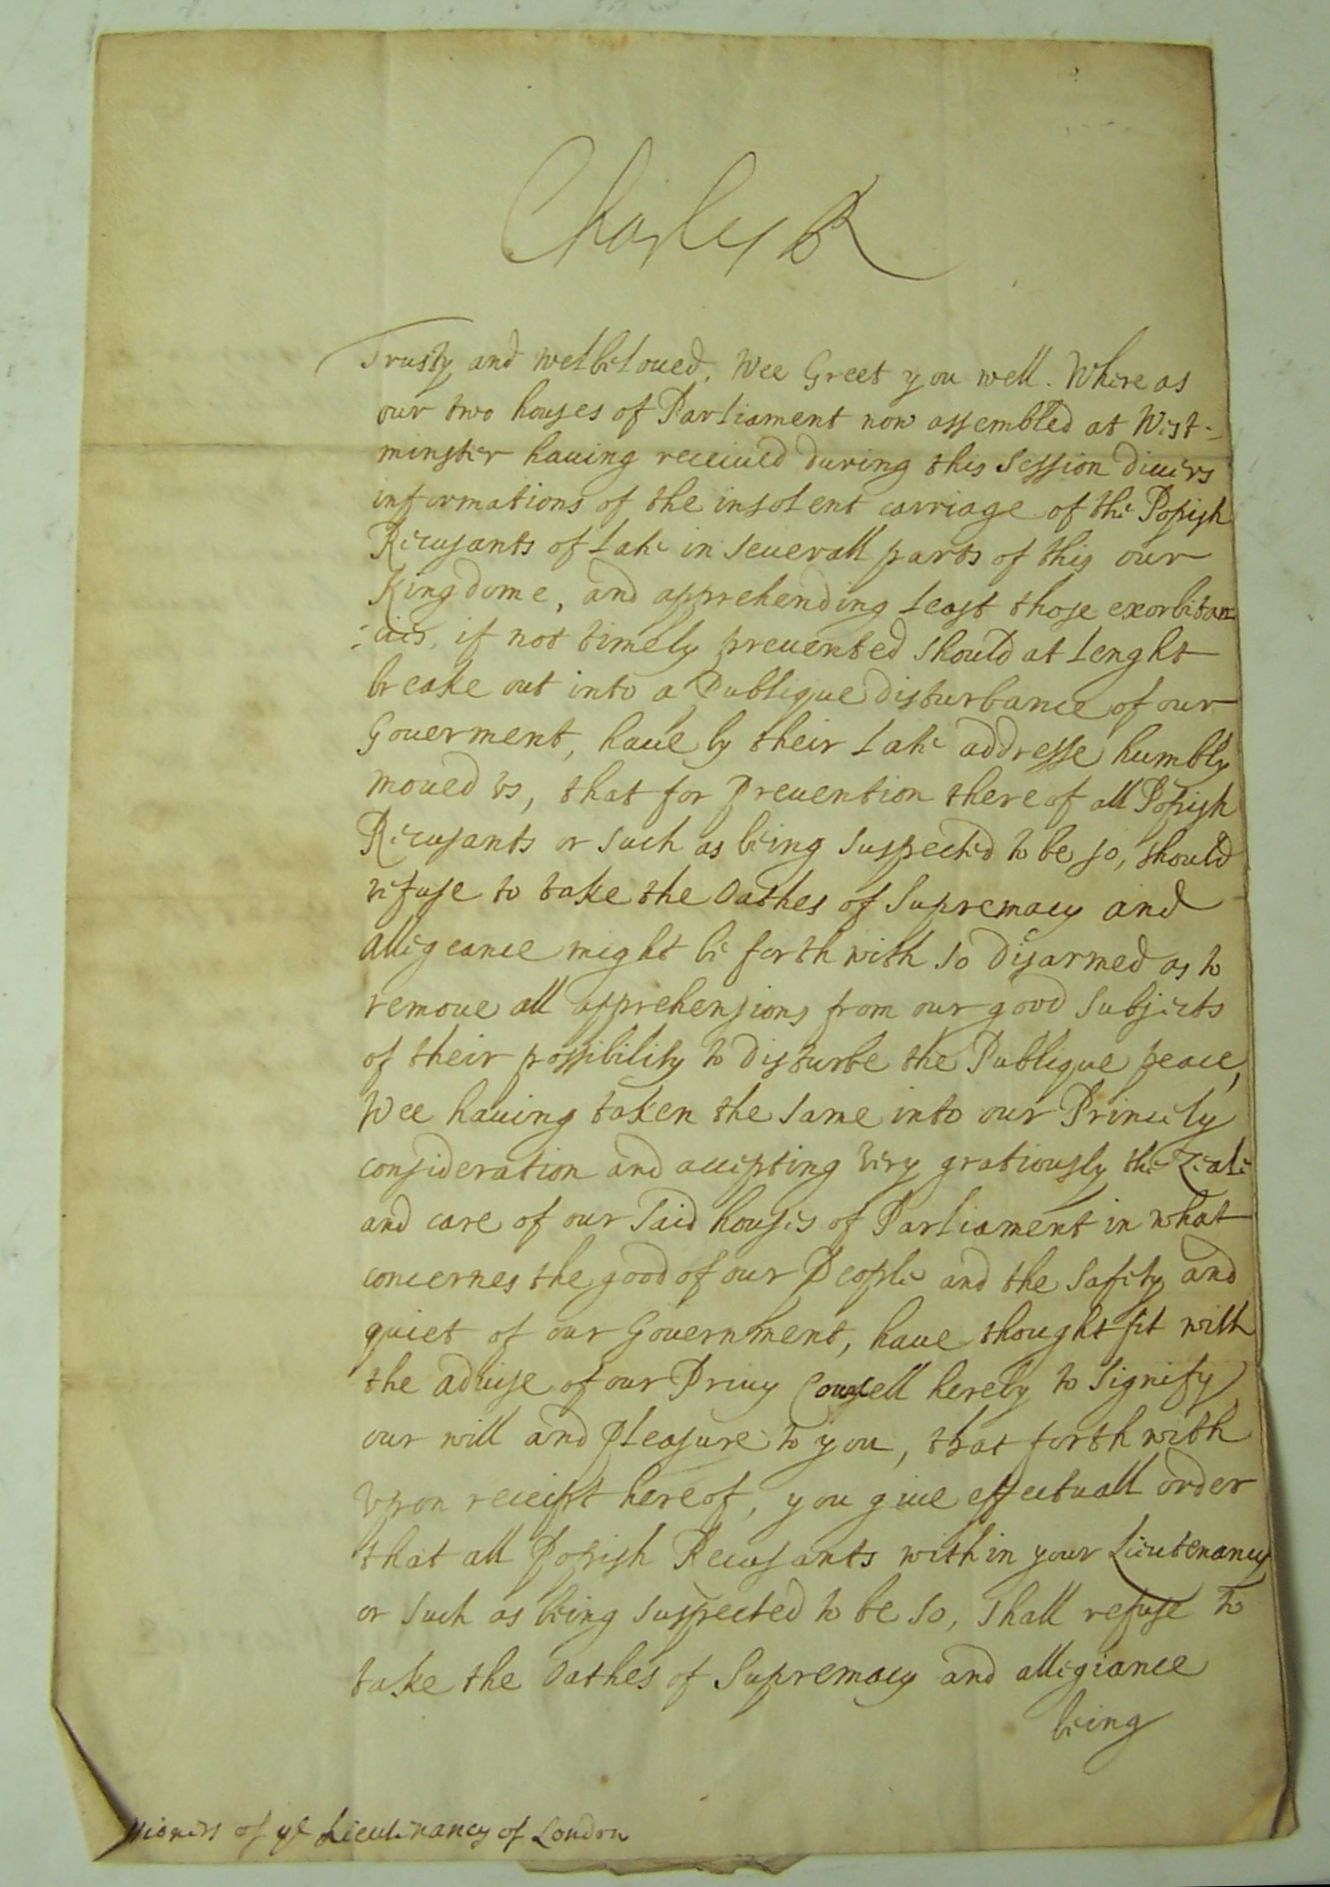 Charles R
Trusty and welbeloued, Wee Greet you well. Where as
our two houses of Parliament now assembled at West-
minster hauing receiued during this Session diuers
informations of the insolent carriage of the Popish
Recusants of late in seuerall parts of this our
Kingdome, and apprehending least those exorbitan=
:cies, if not timely preuented should at lenght
breake out into a Publique disturbance of our
Gouerment, haue by their late addresse humbly
moued vs, that for preuention there of all Popish
Recusants or such as being suspected to be so, should
refuse to take the Oathes of Supremacy and
allegeance might be forth with so disarmed as to
remoue all apprehensions from our good Subjects
of their possibility to disturbe the Publique peace,
Wee hauing taken the same into our Princely
consideration and accepting very gratiously the Zeale
and care of our Said houses of Parliament in what
concernes the good of our People and the Safety and
quiet of our Government, haue thought fit with
the aduise of our Priuy Counsell hereby to signify
our will and pleasure to you, that forth with
vpon receipt hereof, you giue effectuall order
that all Popish Recusants with in your Lieutenancy
or such as being suspected to be so, shall refuse to
take the Oathes of Supremacy and allegiance
being
of ye Lieutenancy of London